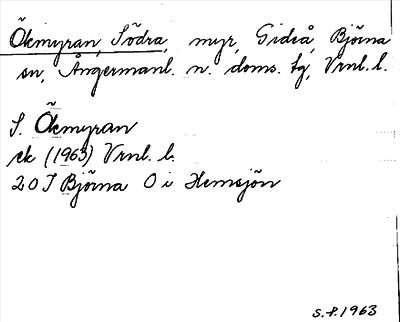 Ökmyran, Södra, myr, Gideå, Björna
sn, Ångermanl. n. doms. tg, Vrnl. l.
S. Ökmyran
ek (1963) Vrnl. l.
20 J Björna O i Hemsjön
S.P. 1963